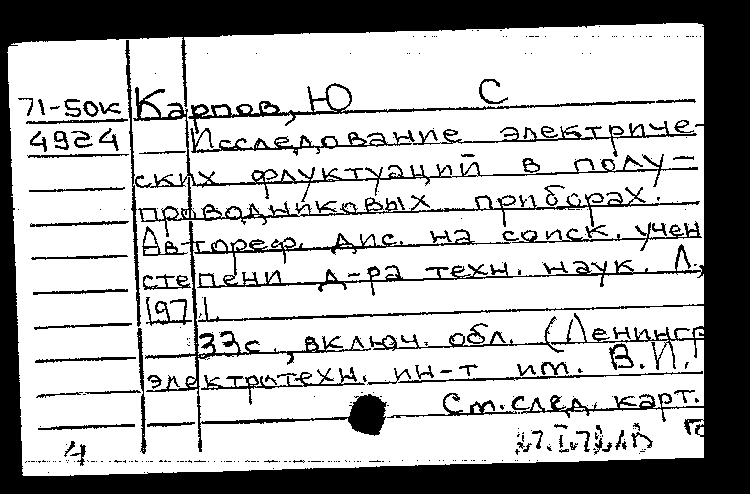 71-50к Карпов, Ю С
4924 Исследование электриче-
ских флуктуаций в полу-
проводниковых приборах.
Автореф. дис. на соиск. учен
степени д-ра техн. наук. Л.,
1971.
33с., включ. обл. (Ленингр
электротехн. ин-т им. В.И.
См. след. карт.
4